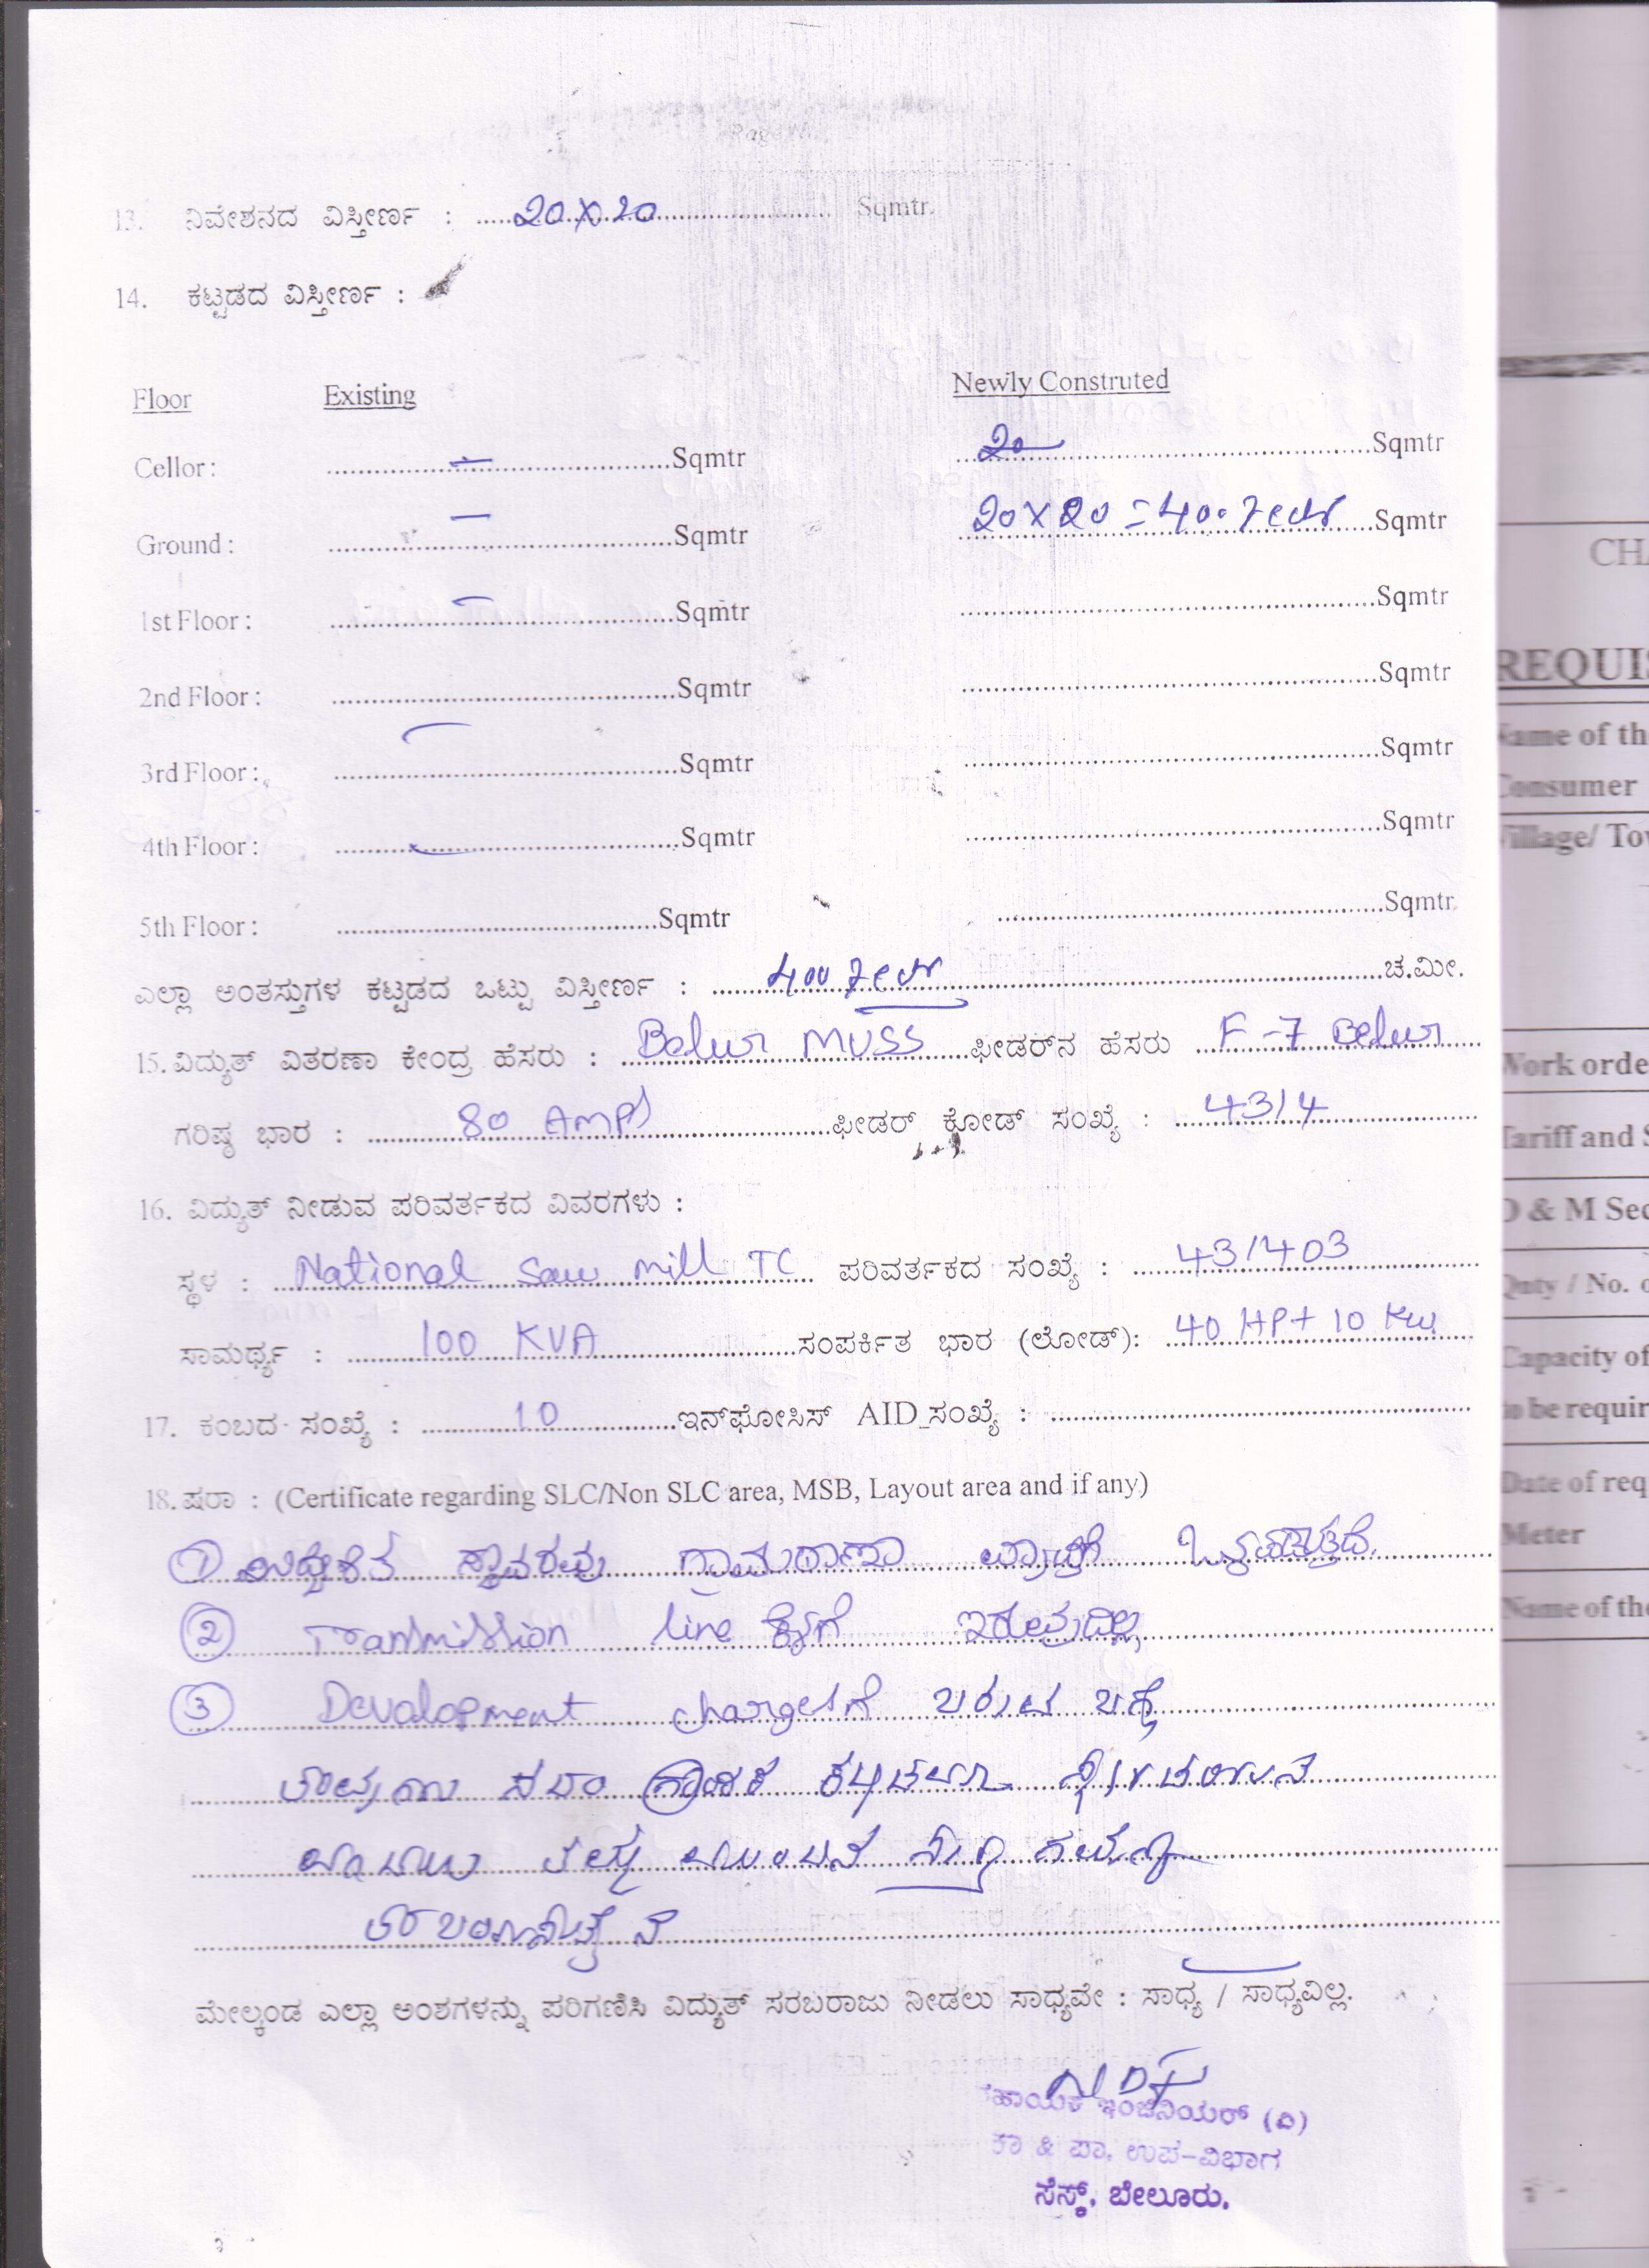 13. ನಿವೇಶನದ ವಿಸ್ತೀರ್ಣ : 20 X 20 Sqmtr.
14. ಕಟ್ಟಡದ ವಿಸ್ತೀರ್ಣ :
Floor Existing Newly Construted
Cellor : – Sqmtr 20 Sqmtr
Ground : – Sqmtr 20 X 20 = 400 Sqmtr
1st Floor : – Sqmtr Sqmtr
2nd Floor : Sqmtr Sqmtr
3rd Floor : Sqmtr Sqmtr
4th Floor : Sqmtr Sqmtr
5th Floor : Sqmtr Sqmtr
ಎಲ್ಲಾ ಅಂತಸ್ತುಗಳ ಕಟ್ಟಡದ ಒಟ್ಟು ವಿಸ್ತೀರ್ಣ : 400 ಚ.ಮೀ.
15. ವಿದ್ಯುತ್ ವಿತರಣಾ ಕೇಂದ್ರ ಹೆಸರು : Belur MUSS ಫೀಡರ್‌ನ ಹೆಸರು F-7 Belur
ಗರಿಷ್ಠ ಭಾರ : 80 AMPS ಫೀಡರ್ ಕೋಡ್ ಸಂಖ್ಯೆ : 4314
16. ವಿದ್ಯುತ್ ನೀಡುವ ಪರಿವರ್ತಕದ ವಿವರಗಳು :
ಸ್ಥಳ : National Saw mill TC ಪರಿವರ್ತಕದ ಸಂಖ್ಯೆ : 431403
ಸಾಮರ್ಥ್ಯ : 100 KVA ಸಂಪರ್ಕಿತ ಭಾರ (ಲೋಡ್): 40 HP + 10 KW
17. ಕಂಬದ ಸಂಖ್ಯೆ : 10 ಇನ್‌ಫೋಸಿಸ್ AID ಸಂಖ್ಯೆ :
18. ಷರಾ : (Certificate regarding SLC/Non SLC area, MSB, Layout area and if any)
① ಉದ್ದೇಶಿತ ಸ್ಥಾವರವು ಗ್ರಾಮಠಾಣಾ ವ್ಯಾಪ್ತಿಗೆ ಒಳಪಡುತ್ತದೆ.
② Transmission line ಕೆಳಗೆ ಇರುವುದಿಲ್ಲ
③ Devalopment chargesಗೆ ಬರುವ ಬಗ್ಗೆ
ಮೇಲ್ಕಂಡ ಎಲ್ಲಾ ಅಂಶಗಳನ್ನು ಪರಿಗಣಿಸಿ ವಿದ್ಯುತ್ ಸರಬರಾಜು ನೀಡಲು ಸಾಧ್ಯವೇ : ಸಾಧ್ಯ / ಸಾಧ್ಯವಿಲ್ಲ.
ಸಹಾಯಕ ಇಂಜಿನಿಯರ್ (ವಿ)
ಕಾ & ಪಾ, ಉಪ-ವಿಭಾಗ
ಸೆಸ್ಕ್, ಬೇಲೂರು.
CHA
REQUIS
Name of th
Consumer
Village/ To
Work orde
Tariff and S
O & M Sec
Qnty / No. o
Capacity of
to be requir
Date of req
Meter
Name of the